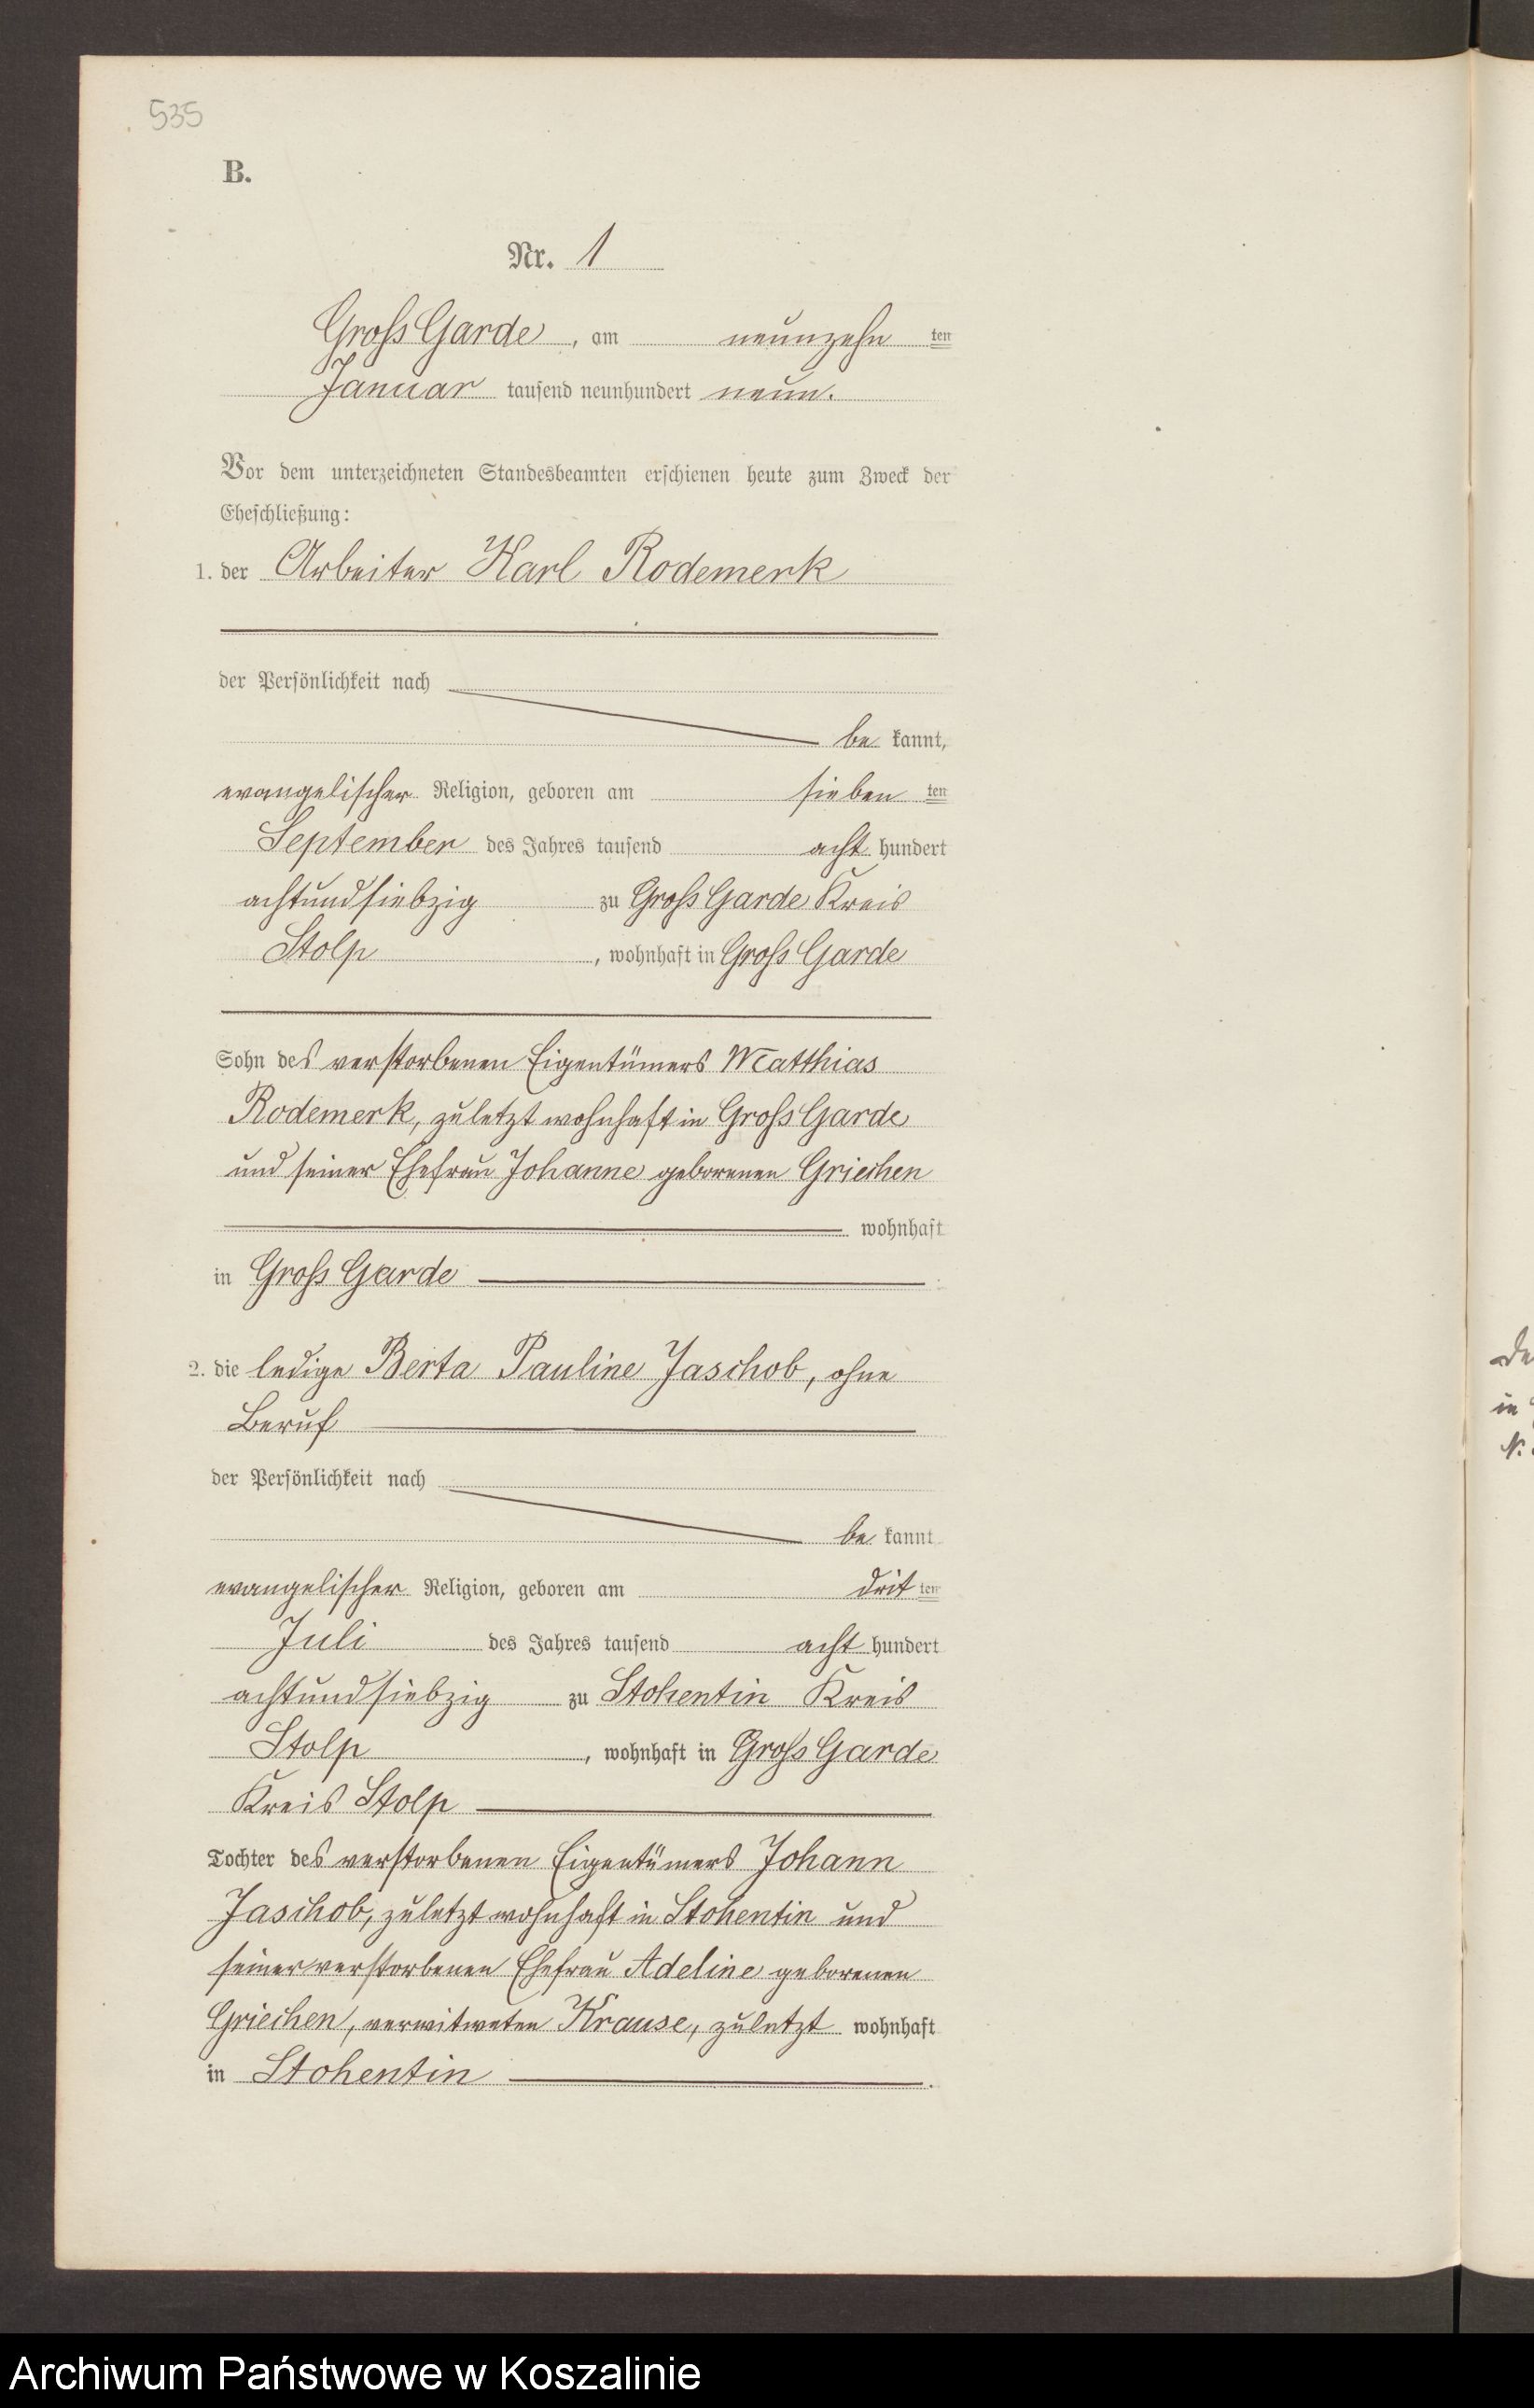 535
B.
Nr. 1
Groß Garde, am neunzehn ten
Januar tausend neunhundert neun.
Vor dem unterzeichneten Standesbeamten erschienen heute zum Zweck der
Eheschließung:
1. der Arbeiter Karl Rodemerk
der Persönlichkeit nach
be kannt,
evangelischer Religion, geboren am sieben ten
September des Jahres tausend acht hundert
achtundsiebzig zu Groß Garde Kreis
Stolp, wohnhaft in Groß Garde
Sohn des verstorbenen Eigentümers Matthias
Rodemerk, zuletzt wohnhaft in Groß Garde
und seiner Ehefrau Johanne geborenen Griechen
wohnhaft
in Groß Garde
2. die ledige Berta Pauline Jaschob, ohne
Beruf
der Persönlichkeit nach
be kannt
evangelischer Religion, geboren am drit ten
Juli des Jahres tausend acht hundert
achtundsiebzig zu Stohentin Kreis
Stolp, wohnhaft in Groß Garde
Kreis Stolp
Tochter des verstorbenen Eigentümers Johann
Jaschob, zuletzt wohnhaft in Stohentin und
seiner verstorbenen Ehefrau Adeline geborenen
Griechen, verwitweten Krause, zuletzt wohnhaft
in Stohentin.
De
in
N.
Archiwum Państwowe w Koszalinie